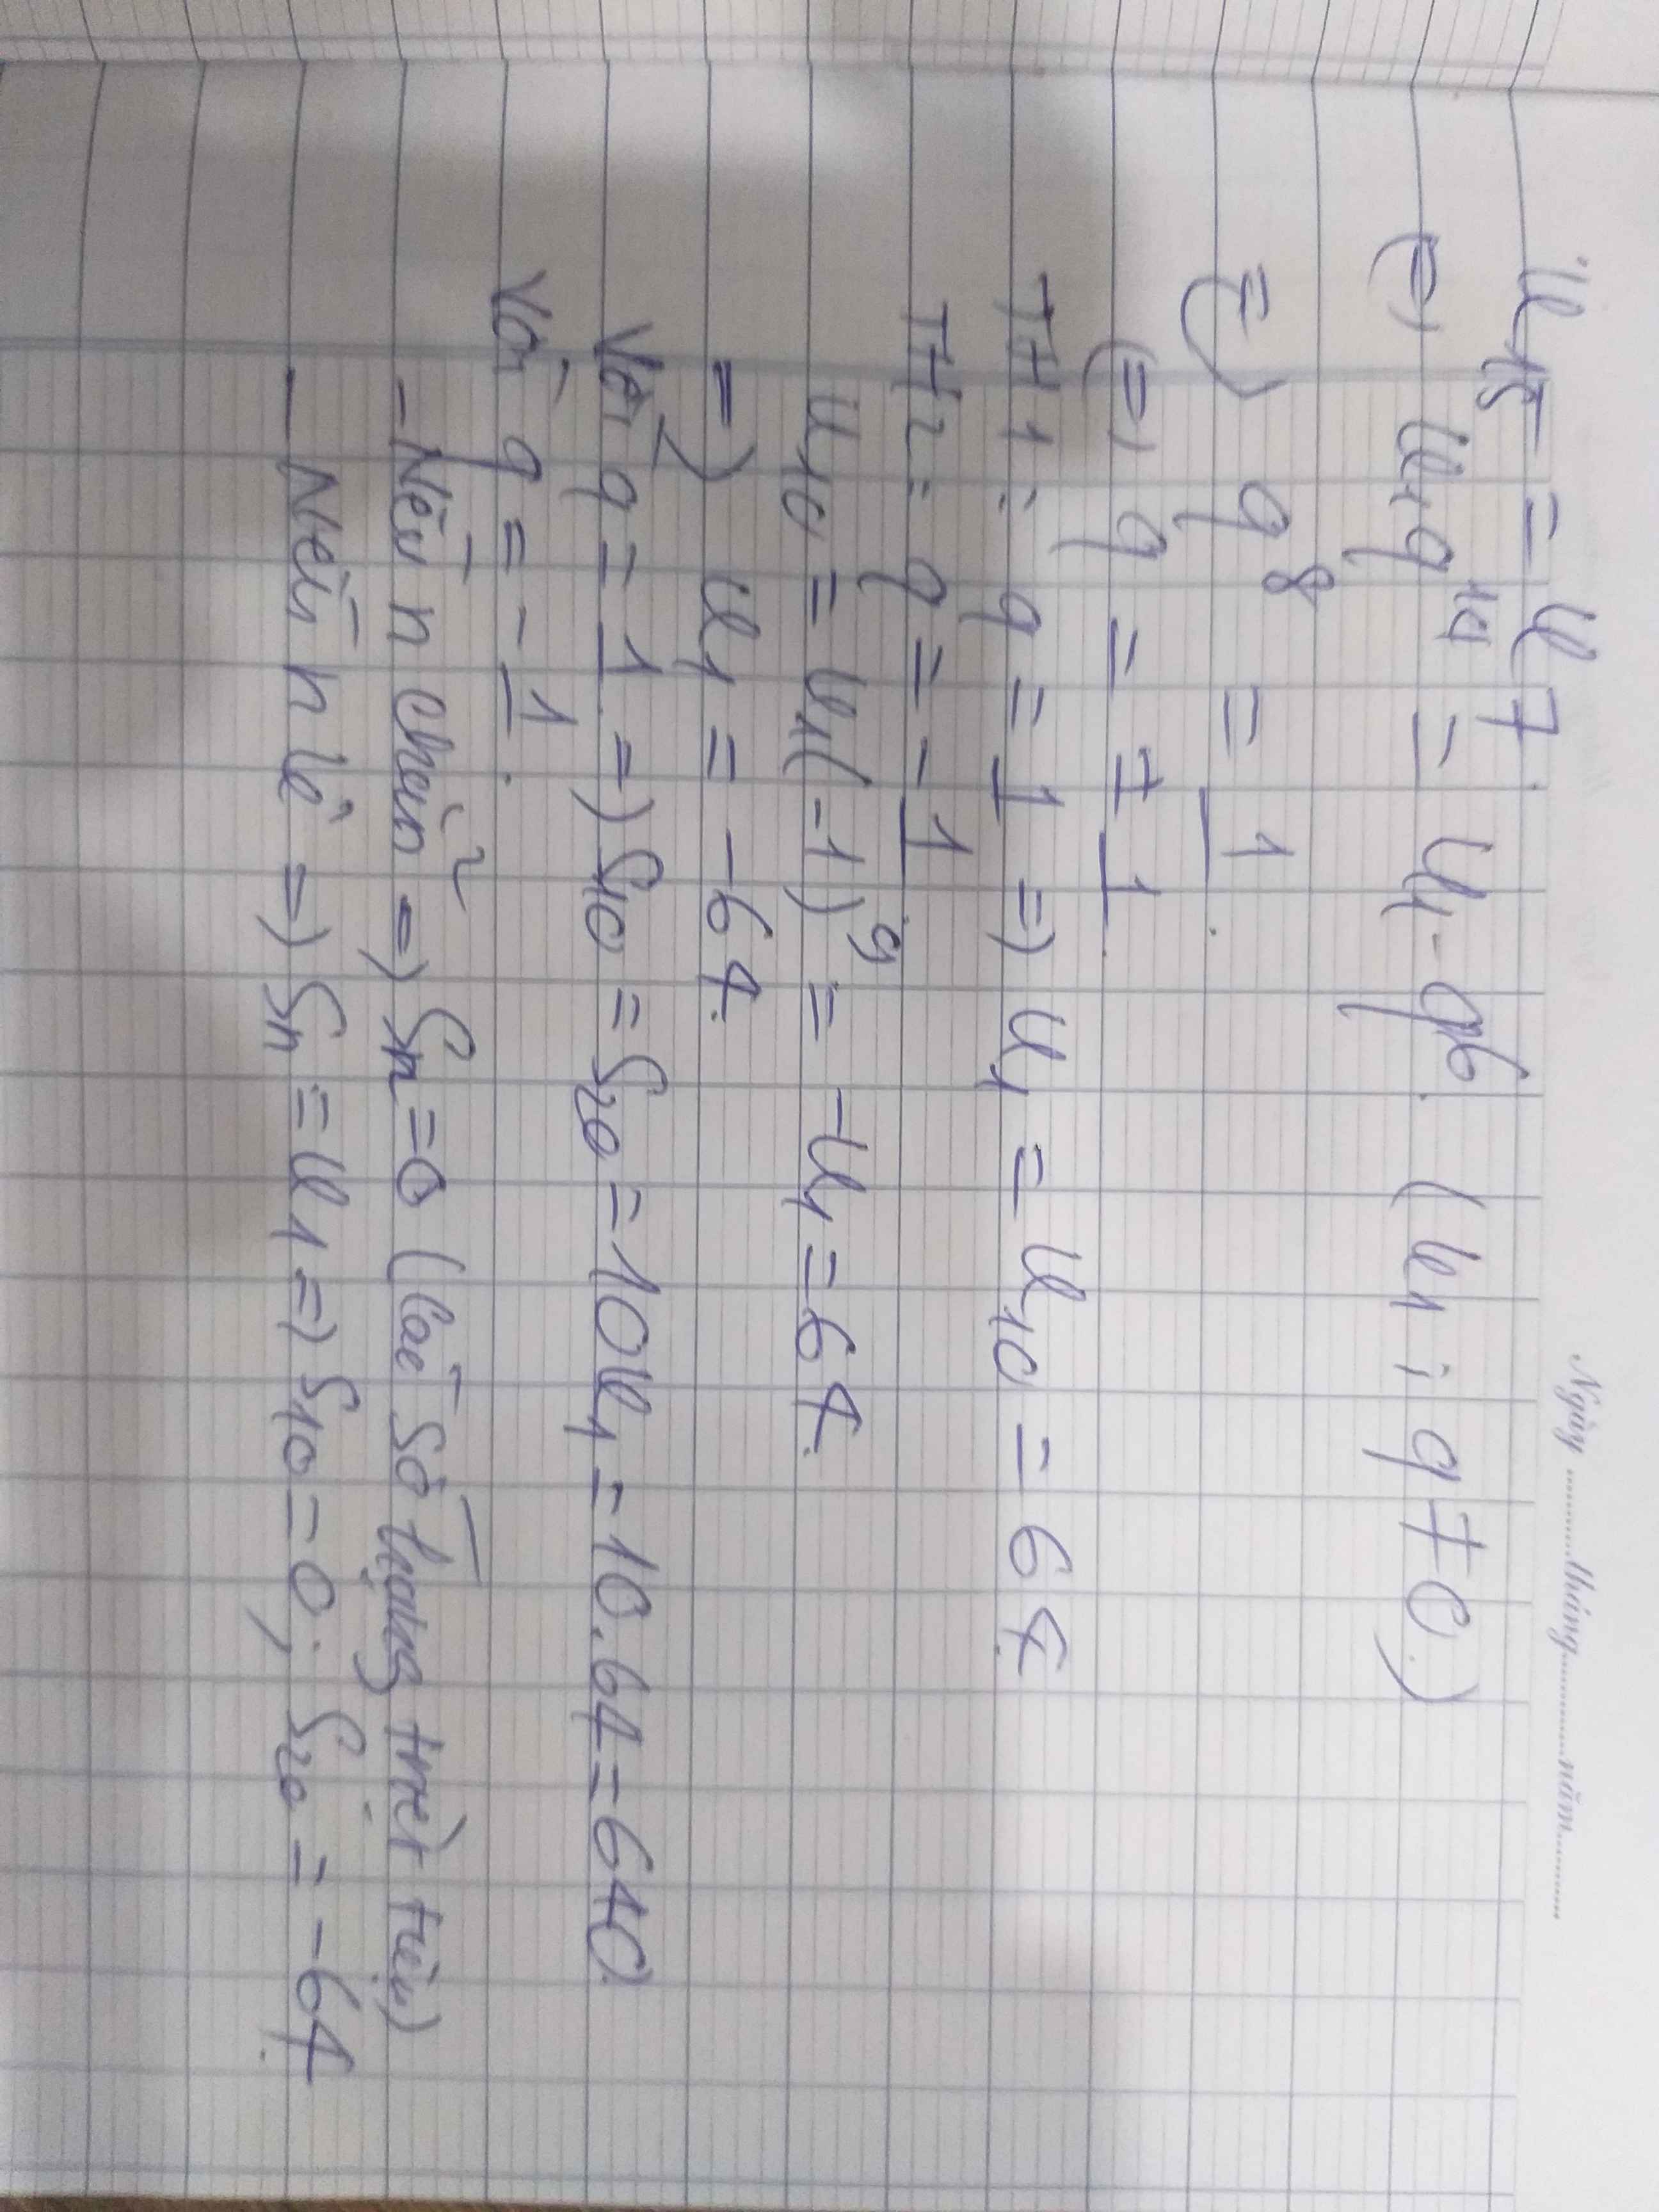 Ngày ........tháng........năm........
U15 = U7.
(=) U1 q^14 = U1 . q^6. (U1 ; q ≠ 0.)
(=) q^8 = 1.
(=) q = ± 1.
TH1 : q = 1 =) U1 = U10 = 64.
TH2: q = -1.
U10 = U1(-1)^9 = -U1 = 64.
=) U1 = -64.
Với q = 1 =) S10 = S20 = 10U1 = 10.64 = 640.
Với q = -1.
- Nếu n chẵn =) Sn = 0 (Các số hạng triệt tiêu)
- Nếu n lẻ =) Sn = U1 =) S10 = 0; S20 = -64.